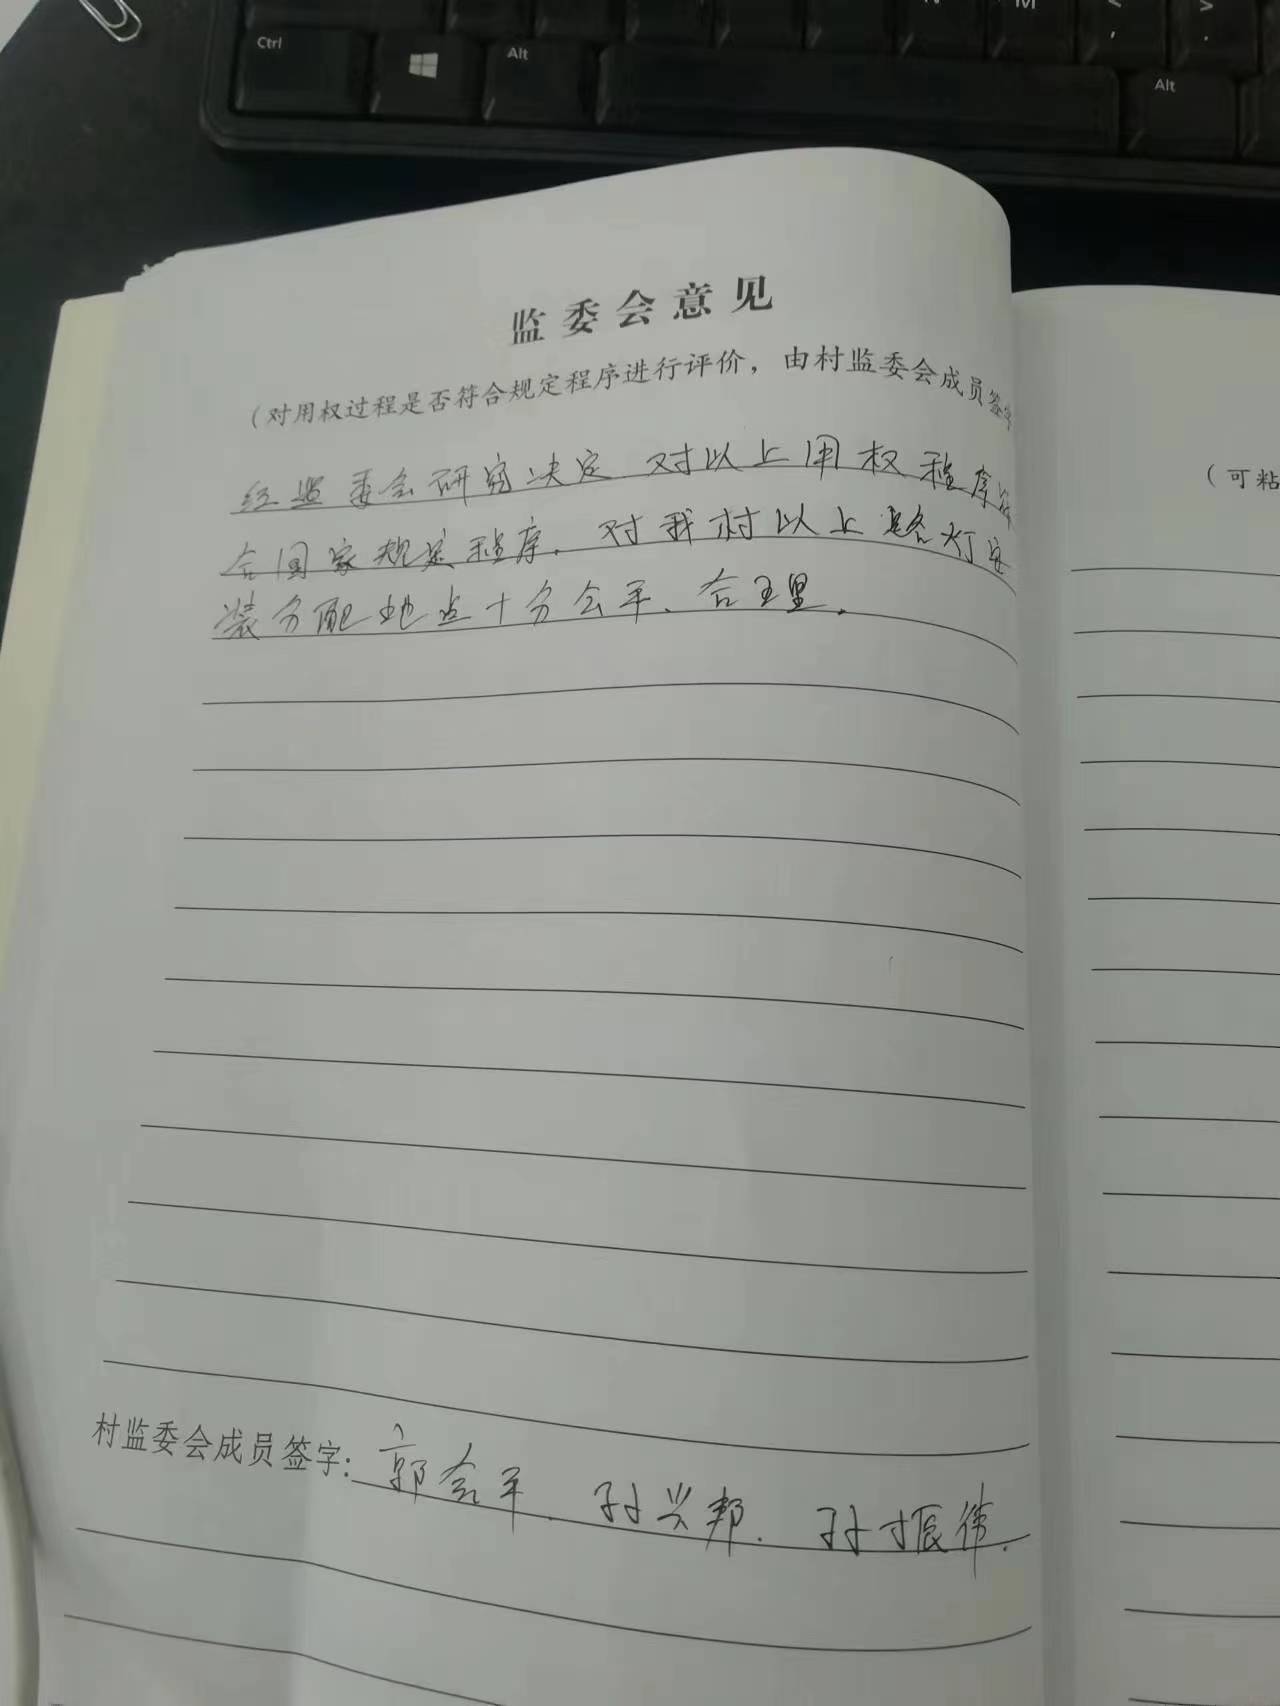 Ctrl
Alt
Alt
监委会意见
（对用权过程是否符合规定程序进行评价，由村监委会成员签字
经监委会研究决定 对以上用权程序符
合国家规定程序，对我村以上路灯安
装分配地点十分公平、合理。
村监委会成员签字：郭会平、孙兴邦、孙振伟.
（可粘